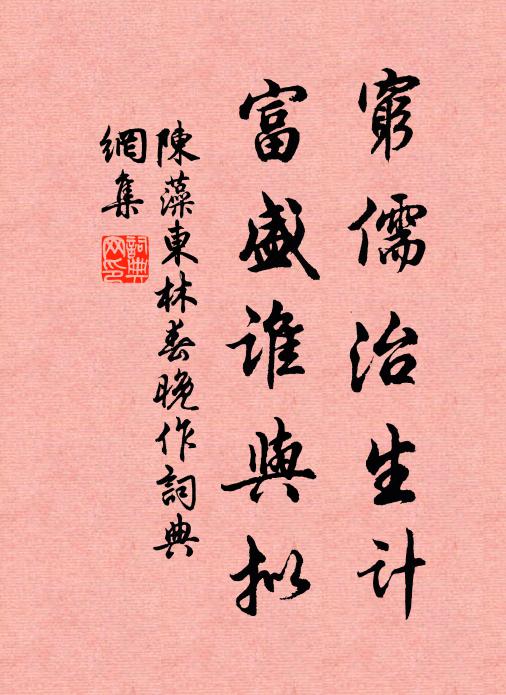 窮儒治生計
富盛誰與擬
陳藻東林春晚作詞典
網集
詞典網印